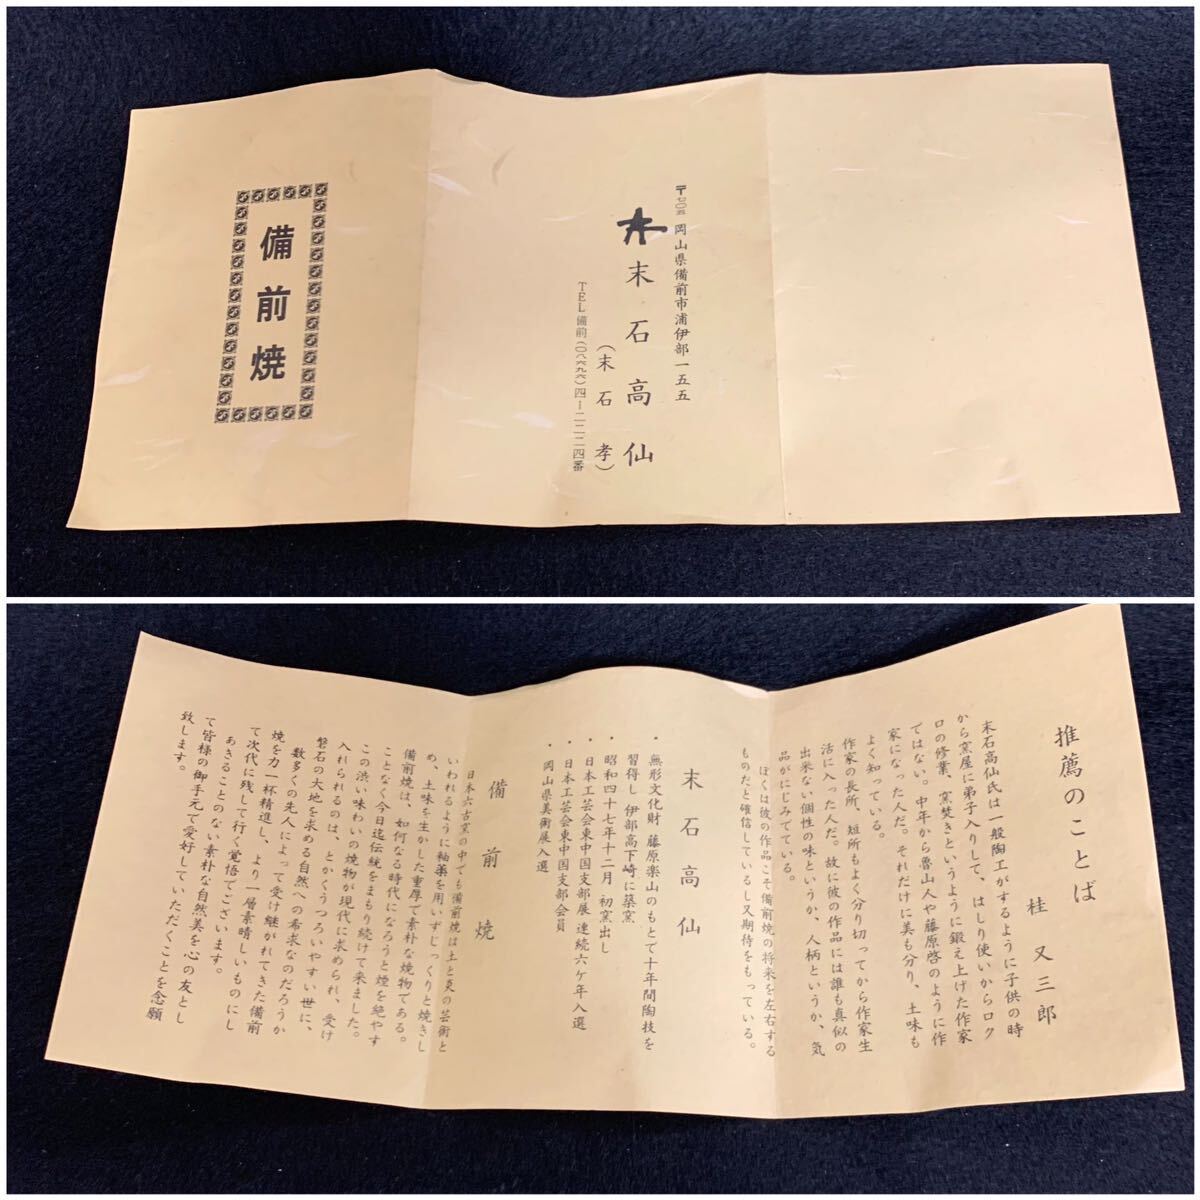 備前焼
〒705 岡山県備前市浦伊部一五五
末石高仙
(末石 孝)
TEL備前(〇八六九六)四ー二二二四番
推薦のことば
桂 又三郎
末石高仙氏は一般陶工がするように子供の時
から窯屋に弟子入りして、はしり使いからロク
ロの修業、窯焚きというように鍛え上げた作家
ではない。中年から魯山人や藤原啓のように作
家になった人だ。それだけに美も分り、土味も
よく知っている。
作家の長所、短所もよく分り切ってから作家生
活に入った人だ。故に彼の作品には誰も真似の
出来ない個性の味というか、人柄というか、気
品がにじみでてている。
ぼくは彼の作品こそ備前焼の将来を左右する
ものだと確信しているし又期待をもっている。
末石高仙
・無形文化財 藤原楽山のもとで十年間陶技を
習得し 伊部高下崎に築窯
・昭和四十七年十二月 初窯出し
・日本工芸会東中国支部展 連続六ケ年入選
・日本工芸会東中国支部会員
・岡山県美術展入選
備前焼
日本六古窯の中でも備前焼は土と炎の芸術と
いわれるように釉薬を用いずじっくりと焼きし
め、土味を生かした重厚で素朴な焼物である。
備前焼は、如何なる時代になろうと煙を絶やす
ことなく今日迄伝統をまもり続けて来ました。
この渋い味わいの焼物が現代に求められ、受け
入れられるのは、とかくうつろいやすい世に、
磐石の大地を求める自然への希求なのだろうか
数多くの先人によって受け継がれてきた備前
焼を力一杯精進し、より一層素晴しいものにし
て次代に残して行く覚悟でございます。
あきることのない素朴な自然美を心の友とし
て皆様の御手元で愛好していただくことを念願
致します。